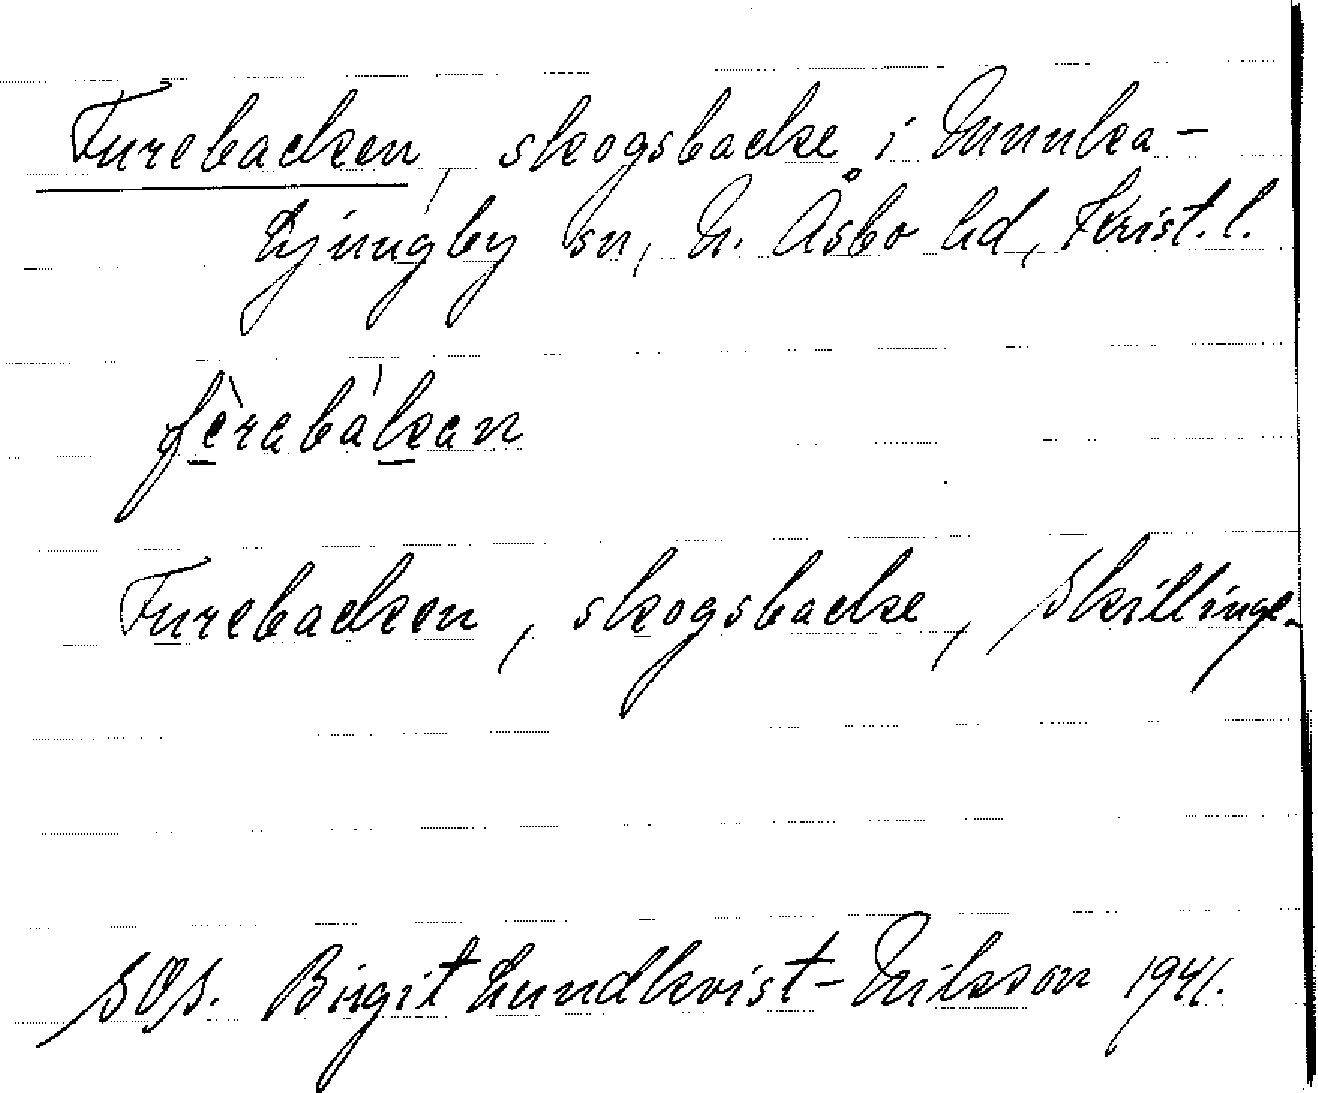 Furebacken, skogsbacke i Munka-
Ljungby sn, N. Åsbo hd, Krist. l.
fèrabákan
Furebacken, skogsbacke, Skillinge.
SOS. Birgit Lundkvist-Nilsson 1941.